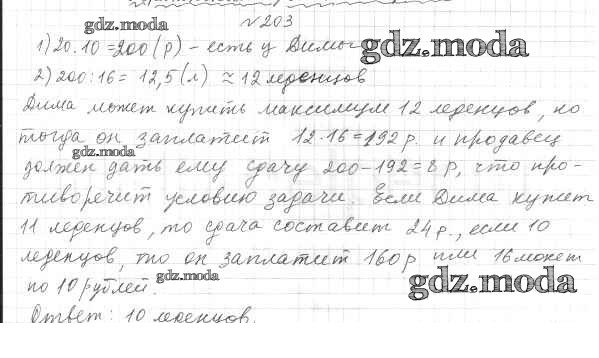 №203
gdz.moda
1) 20·10=200(р) – есть у Димы
gdz.moda
2) 200:16= 12,5(л) ≈ 12 леденцов
Дима может купить максимум 12 леденцов, но
тогда он заплатит 12·16=192 р. и продавец
gdz.moda
должен дать ему сдачу 200-192=8 р, что про-
тиворечит условию задачи. Если Дима купит
11 леденцов, то сдача составит 24 р., если 10
леденцов, то он заплатит 160 р или 16 монет
по 10 рублей.
gdz.moda
gdz.moda
Ответ: 10 леденцов.